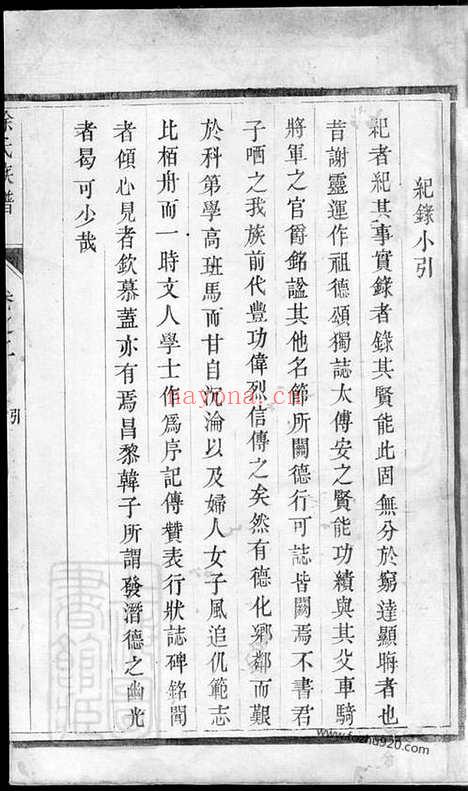 紀錄小引
紀者紀其事實錄者錄其賢能此固無分於窮達顯晦者也
昔謝靈運作祖德頌獨誌太傅安之賢能功績與其父車騎
將軍之官爵銘謚其他名節所關德行可誌皆闕焉不書君
子哂之我族前代豐功偉烈信傳之矣然有德化鄉鄰而艱
於科第學高班馬而甘自沉淪以及婦人女子風追仉範志
比栢舟而一時文人學士作爲序記傳贊表行狀誌碑銘聞
者傾心見者欽慕蓋亦有焉昌黎韓子所謂發潛德之幽光
者曷可少哉
徐氏族譜
卷之二
引
nayona.cn
www.fozhu920.com